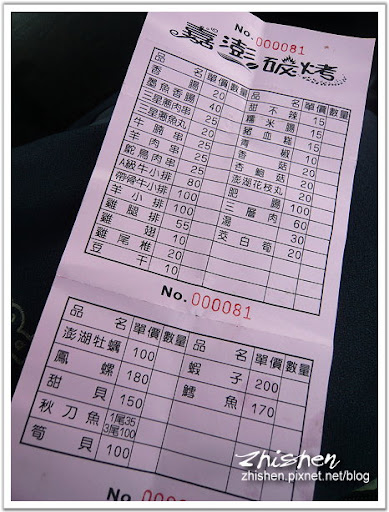 No. 000081
嘉澎碳烤
品名 單價 數量 品名 單價 數量
香腸 20 甜不辣 15
墨魚香腸 40 糯米腸 15
三星蔥肉串 25 豬血糕 15
三星蔥魚丸 20 青椒 10
牛腩串 25 香菇 20
羊肉串 25 杏鮑菇 20
鴕鳥肉串 25 澎湖花枝丸 20
A級牛小排 80 肥腸 100
帶骨牛小排 100 三層肉 60
羊小排 100 湯 30
雞腿排 55 茭白筍 20
雞翅 10
雞尾椎 20
豆干 10
No. 000081
品名 單價 數量 品名 單價 數量
澎湖牡蠣 100 蝦子 200
鳳螺 180 鱈魚 170
甜貝 150
秋刀魚 1尾35 3尾100
筍貝 100
No. 000081
zhishen
zhishen.pixnet.net/blog